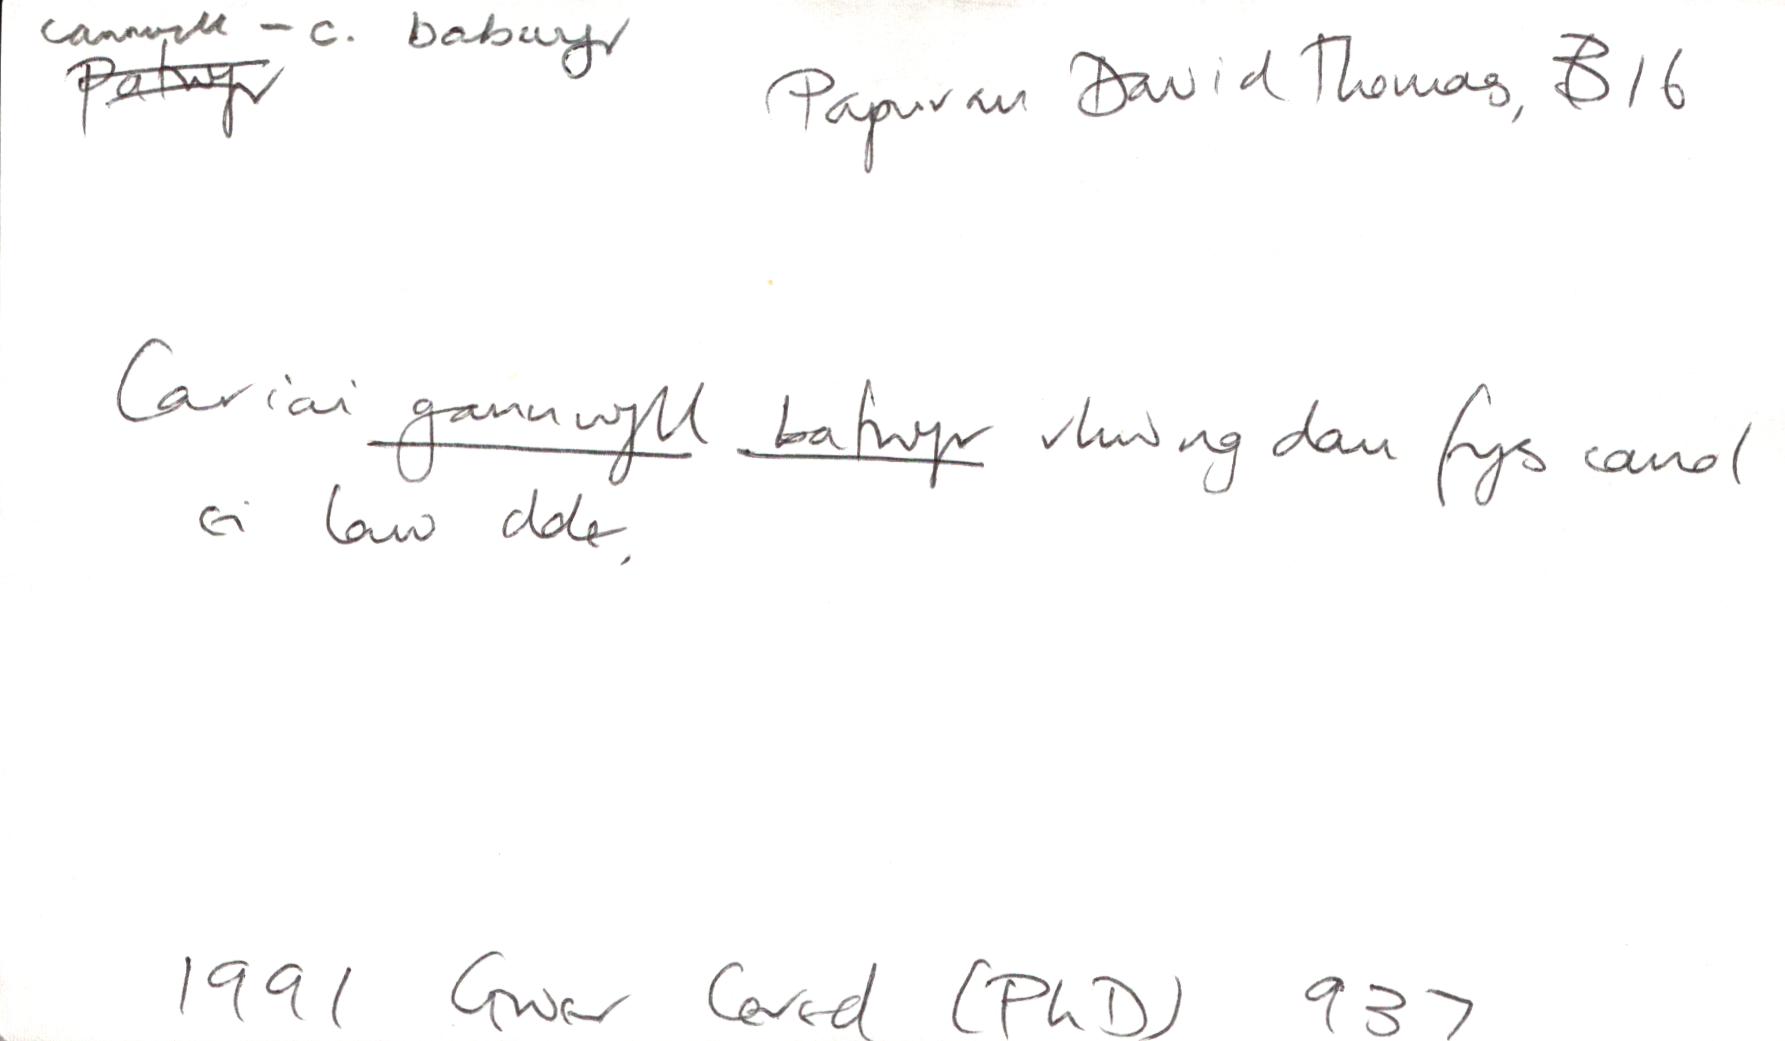 cannwyll – c. babwyr
Pabwyr
Papurau David Thomas, B16
Cariai gannwyll babwyr rhwng dau fys canol
ei law dde.
1991 Gwer Cered (PhD) 937